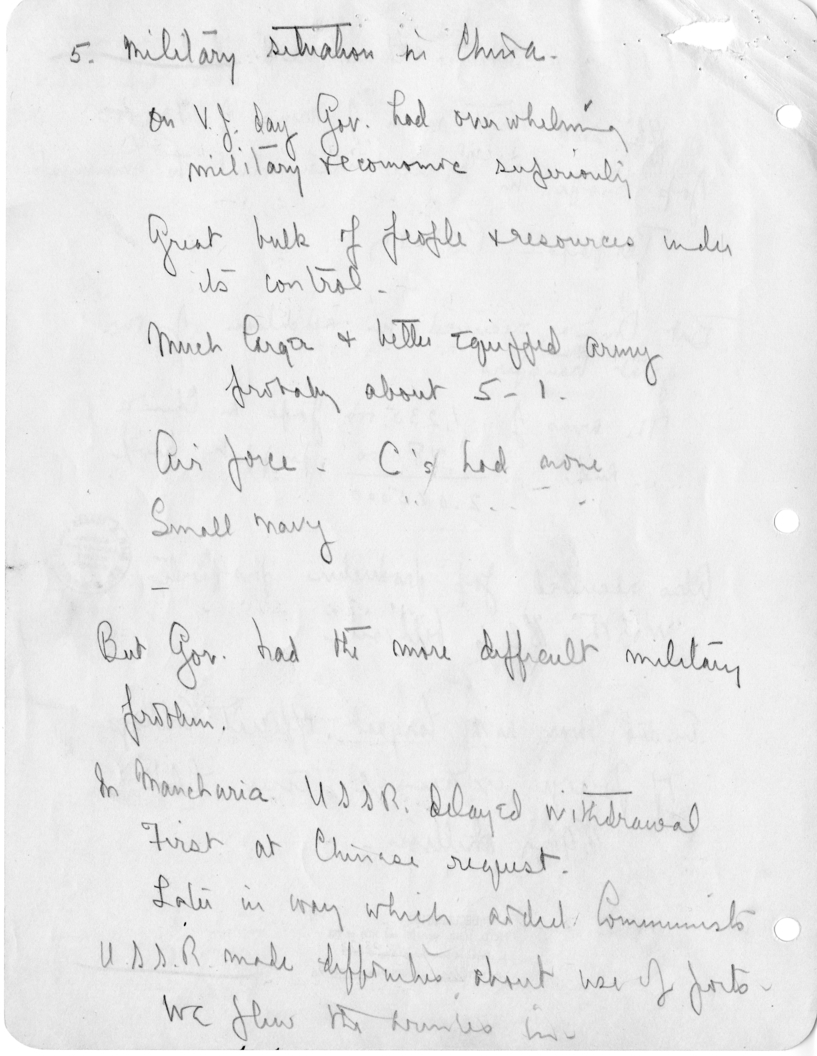 5. Military situation in China.
On V.J. day Gov. had overwhelming
military & economic superiority
Great bulk of people & resources under
its control -
Much larger & better equipped army
probably about 5-1.
Air force - C's had none
Small navy
—
But Gov. had the more difficult military
problem.
In Manchuria U S S R. delayed withdrawal
First at Chinese request.
Later in way which aided Communists
U S S. R. made difficulties about use of ports -
We flew the in -